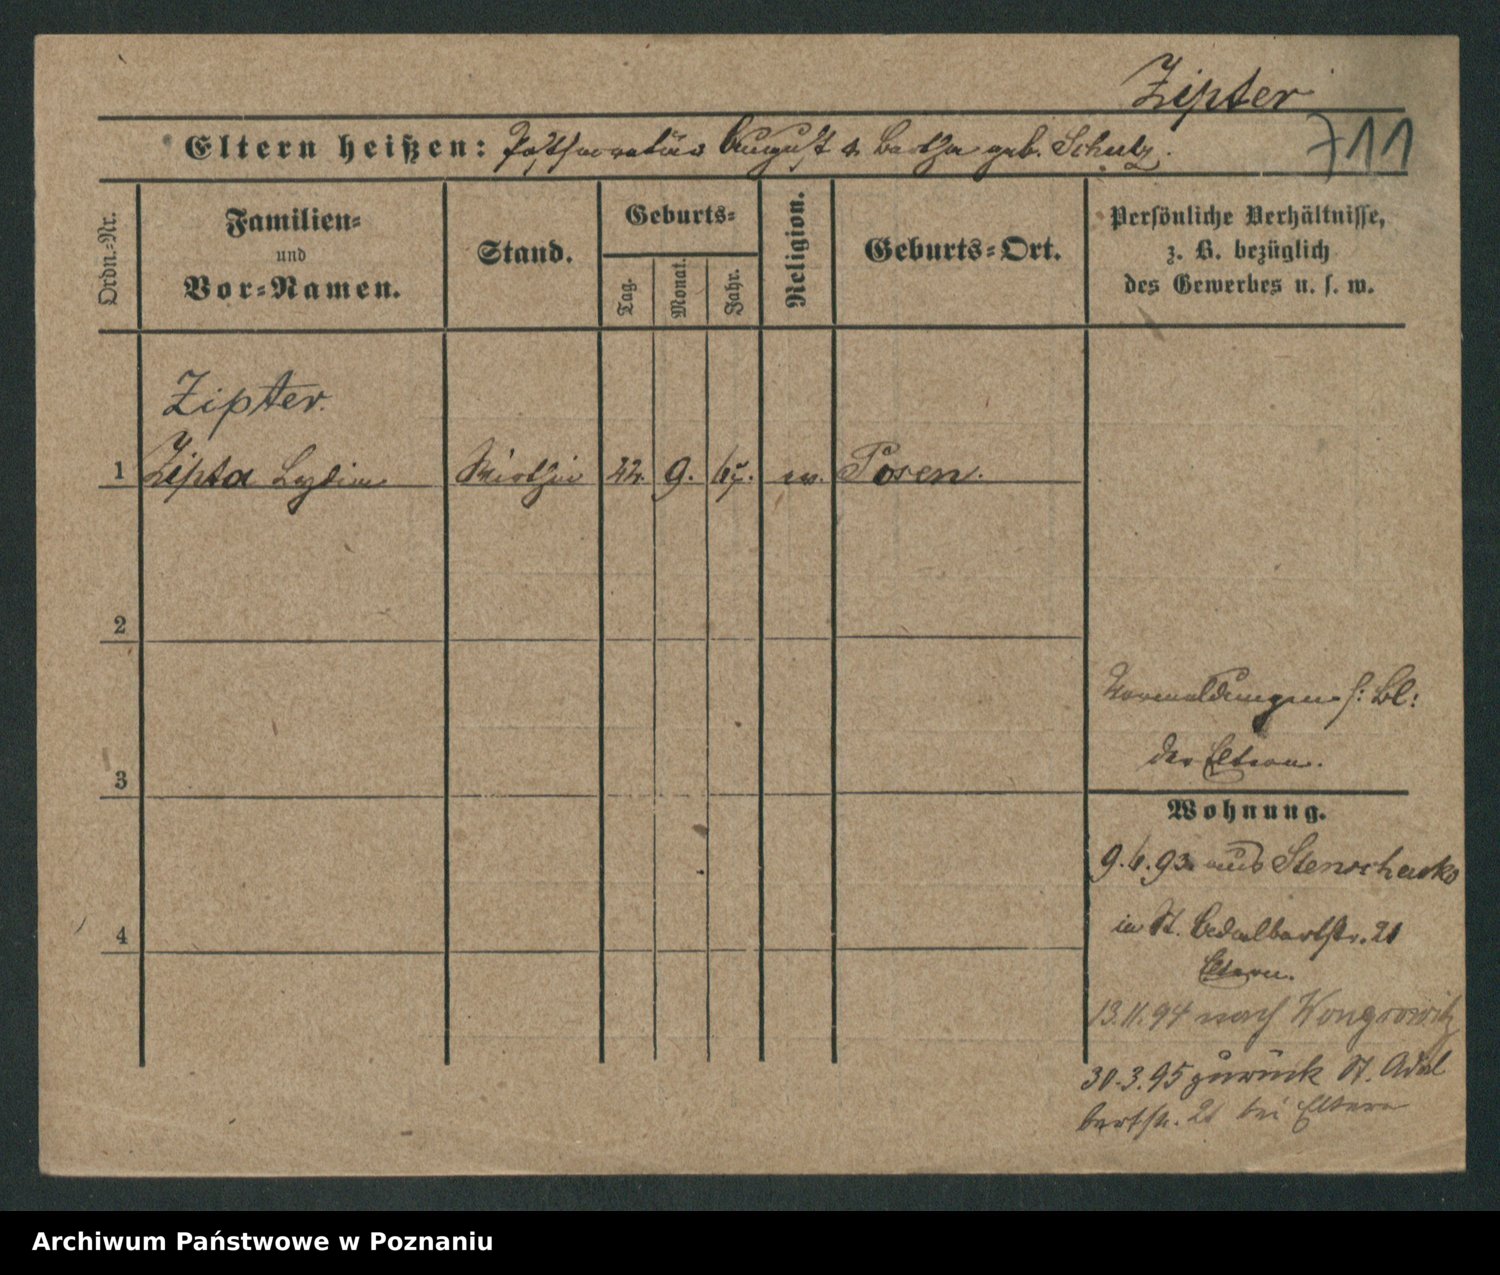 Zipter
711
Eltern heißen: Postsekretär August u. Bertha geb. Schulz.
Ordn.-Nr.
Familien-
und
Vor-Namen.
Stand.
Geburts-
Tag.
Monat.
Jahr.
Religion.
Geburts-Ort.
Persönliche Verhältnisse,
z. B. bezüglich
des Gewerbes u. s. w.
Zipter.
1 Lydia 22. 9. ev. Posen.
2
3
4
Vormeldungen s: Bl:
der Eltern.
Wohnung.
9.6.93. aus
in St. Adalbertstr. 21
Eltern.
13.11.94 nach Wongrowitz
30.3.95 zurück St. Adal
bertstr. 21 bei Eltern
Archiwum Państwowe w Poznaniu